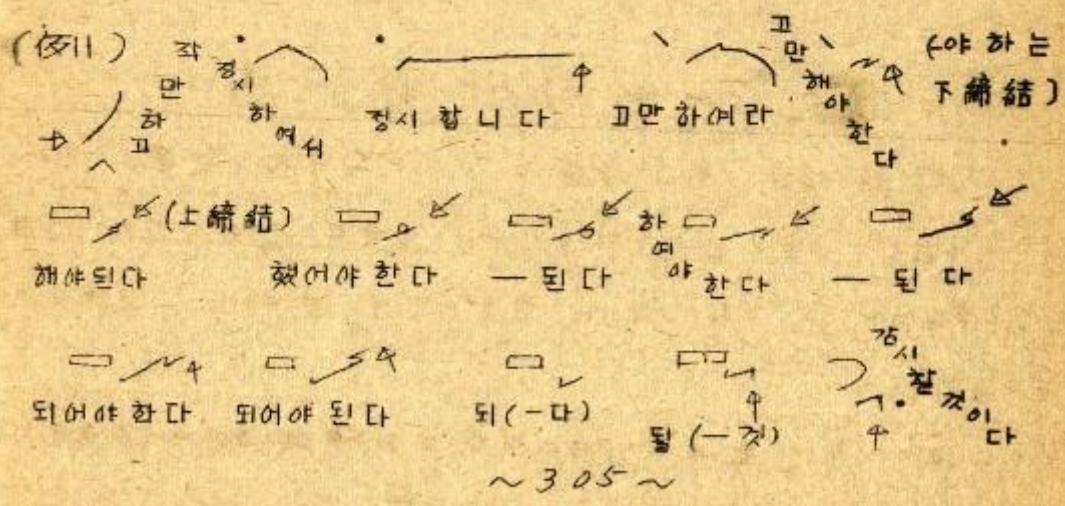 (例) 작만하고 정시하여서 정시합니다 고만하여라 고만해야한다 (-야 하는
下締結)
(上締結)
해야된다 했어야한다 —된다 하여야한다 —된다
되어야한다 되어야된다 되(—다) 될(—것) 감시할것이다
~305~